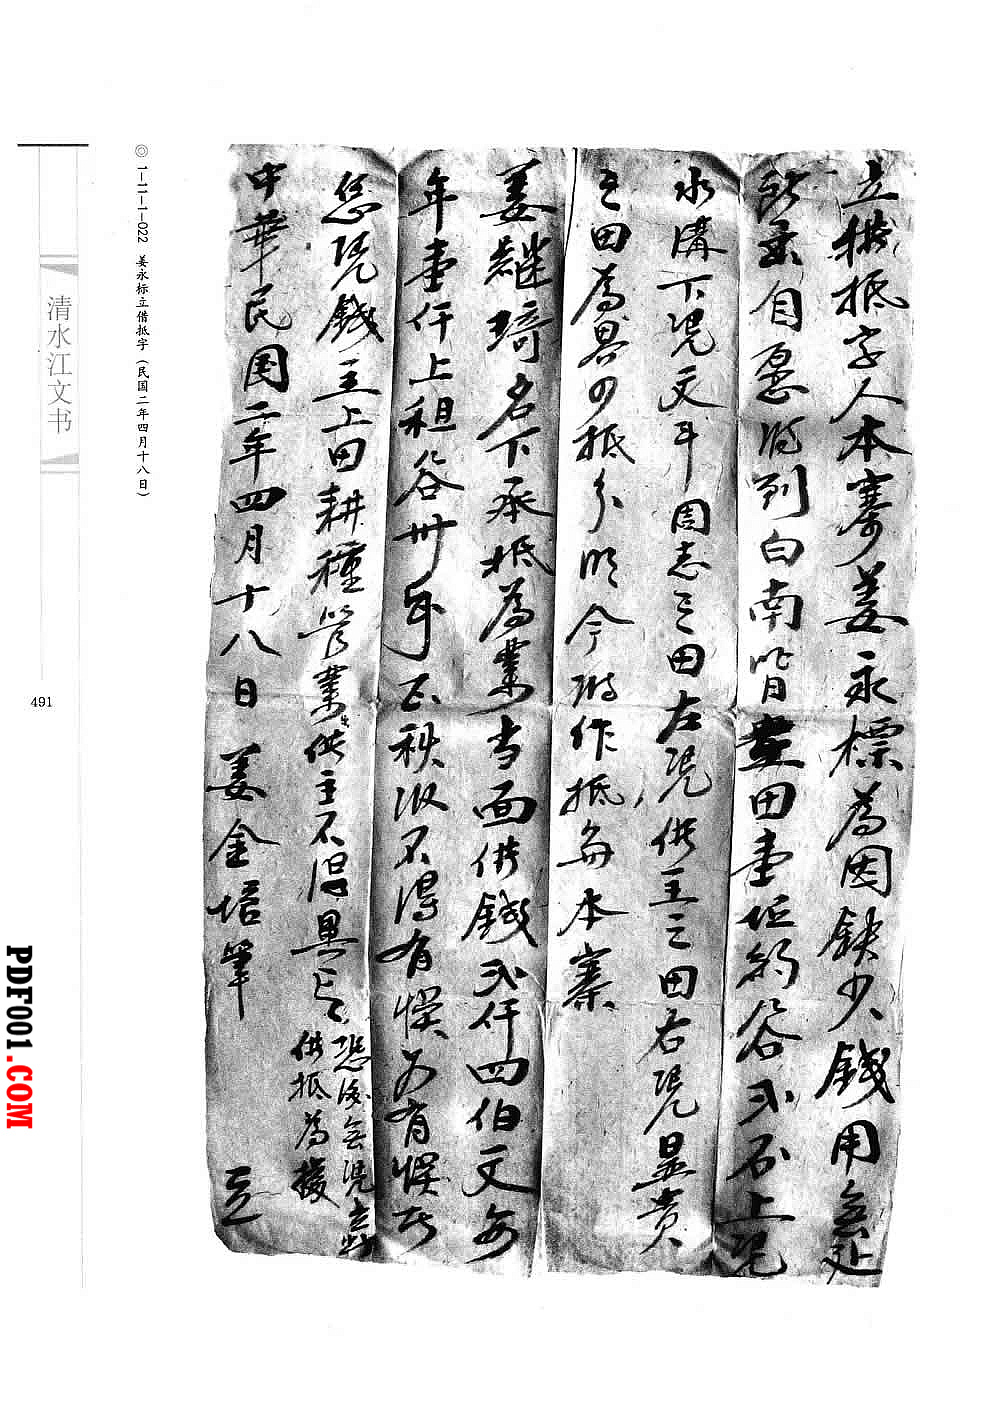 立借抵字人本寨姜永標為因缺少錢用無処
出自愿將到白南皆盡田壹坵約谷弍石上凴
水溝下凴文斗周志之田左凴借主之田右凴显贵
之田為界四抵分明今將作抵與本寨
姜繼琦名下承抵為業当面借錢弍仟四伯文每
年壹仟上租谷卅斤正秋收不得有悮如有悮
恁凴錢主上田耕種管業借主不得異言
恐後無凴立
借抵為據
中華民国二年四月十八日姜金培筆 立
◎ 1-1-1-022 姜永标立借抵字（民国二年四月十八日）
清水江文书
491
PDF001.COM